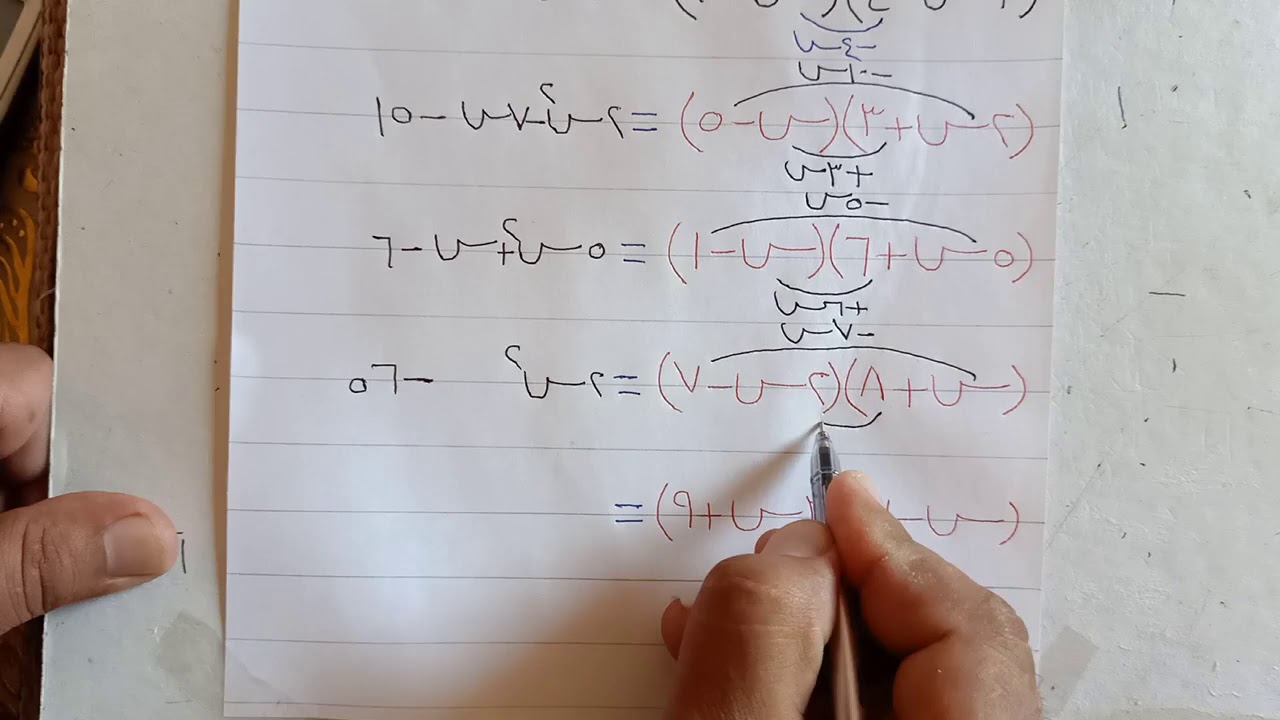 −٤س
−١٠س
(٢س+٣)(س−٥) = ٢س٢−٧س−١٥
+٣س
−٥س
(٥س+٦)(س−١) = ٥س٢+س−٦
+٦س
−٧س
(س+٨)(٢س−٧) = ٢س٢ −٥٦
(س− س+٩) =